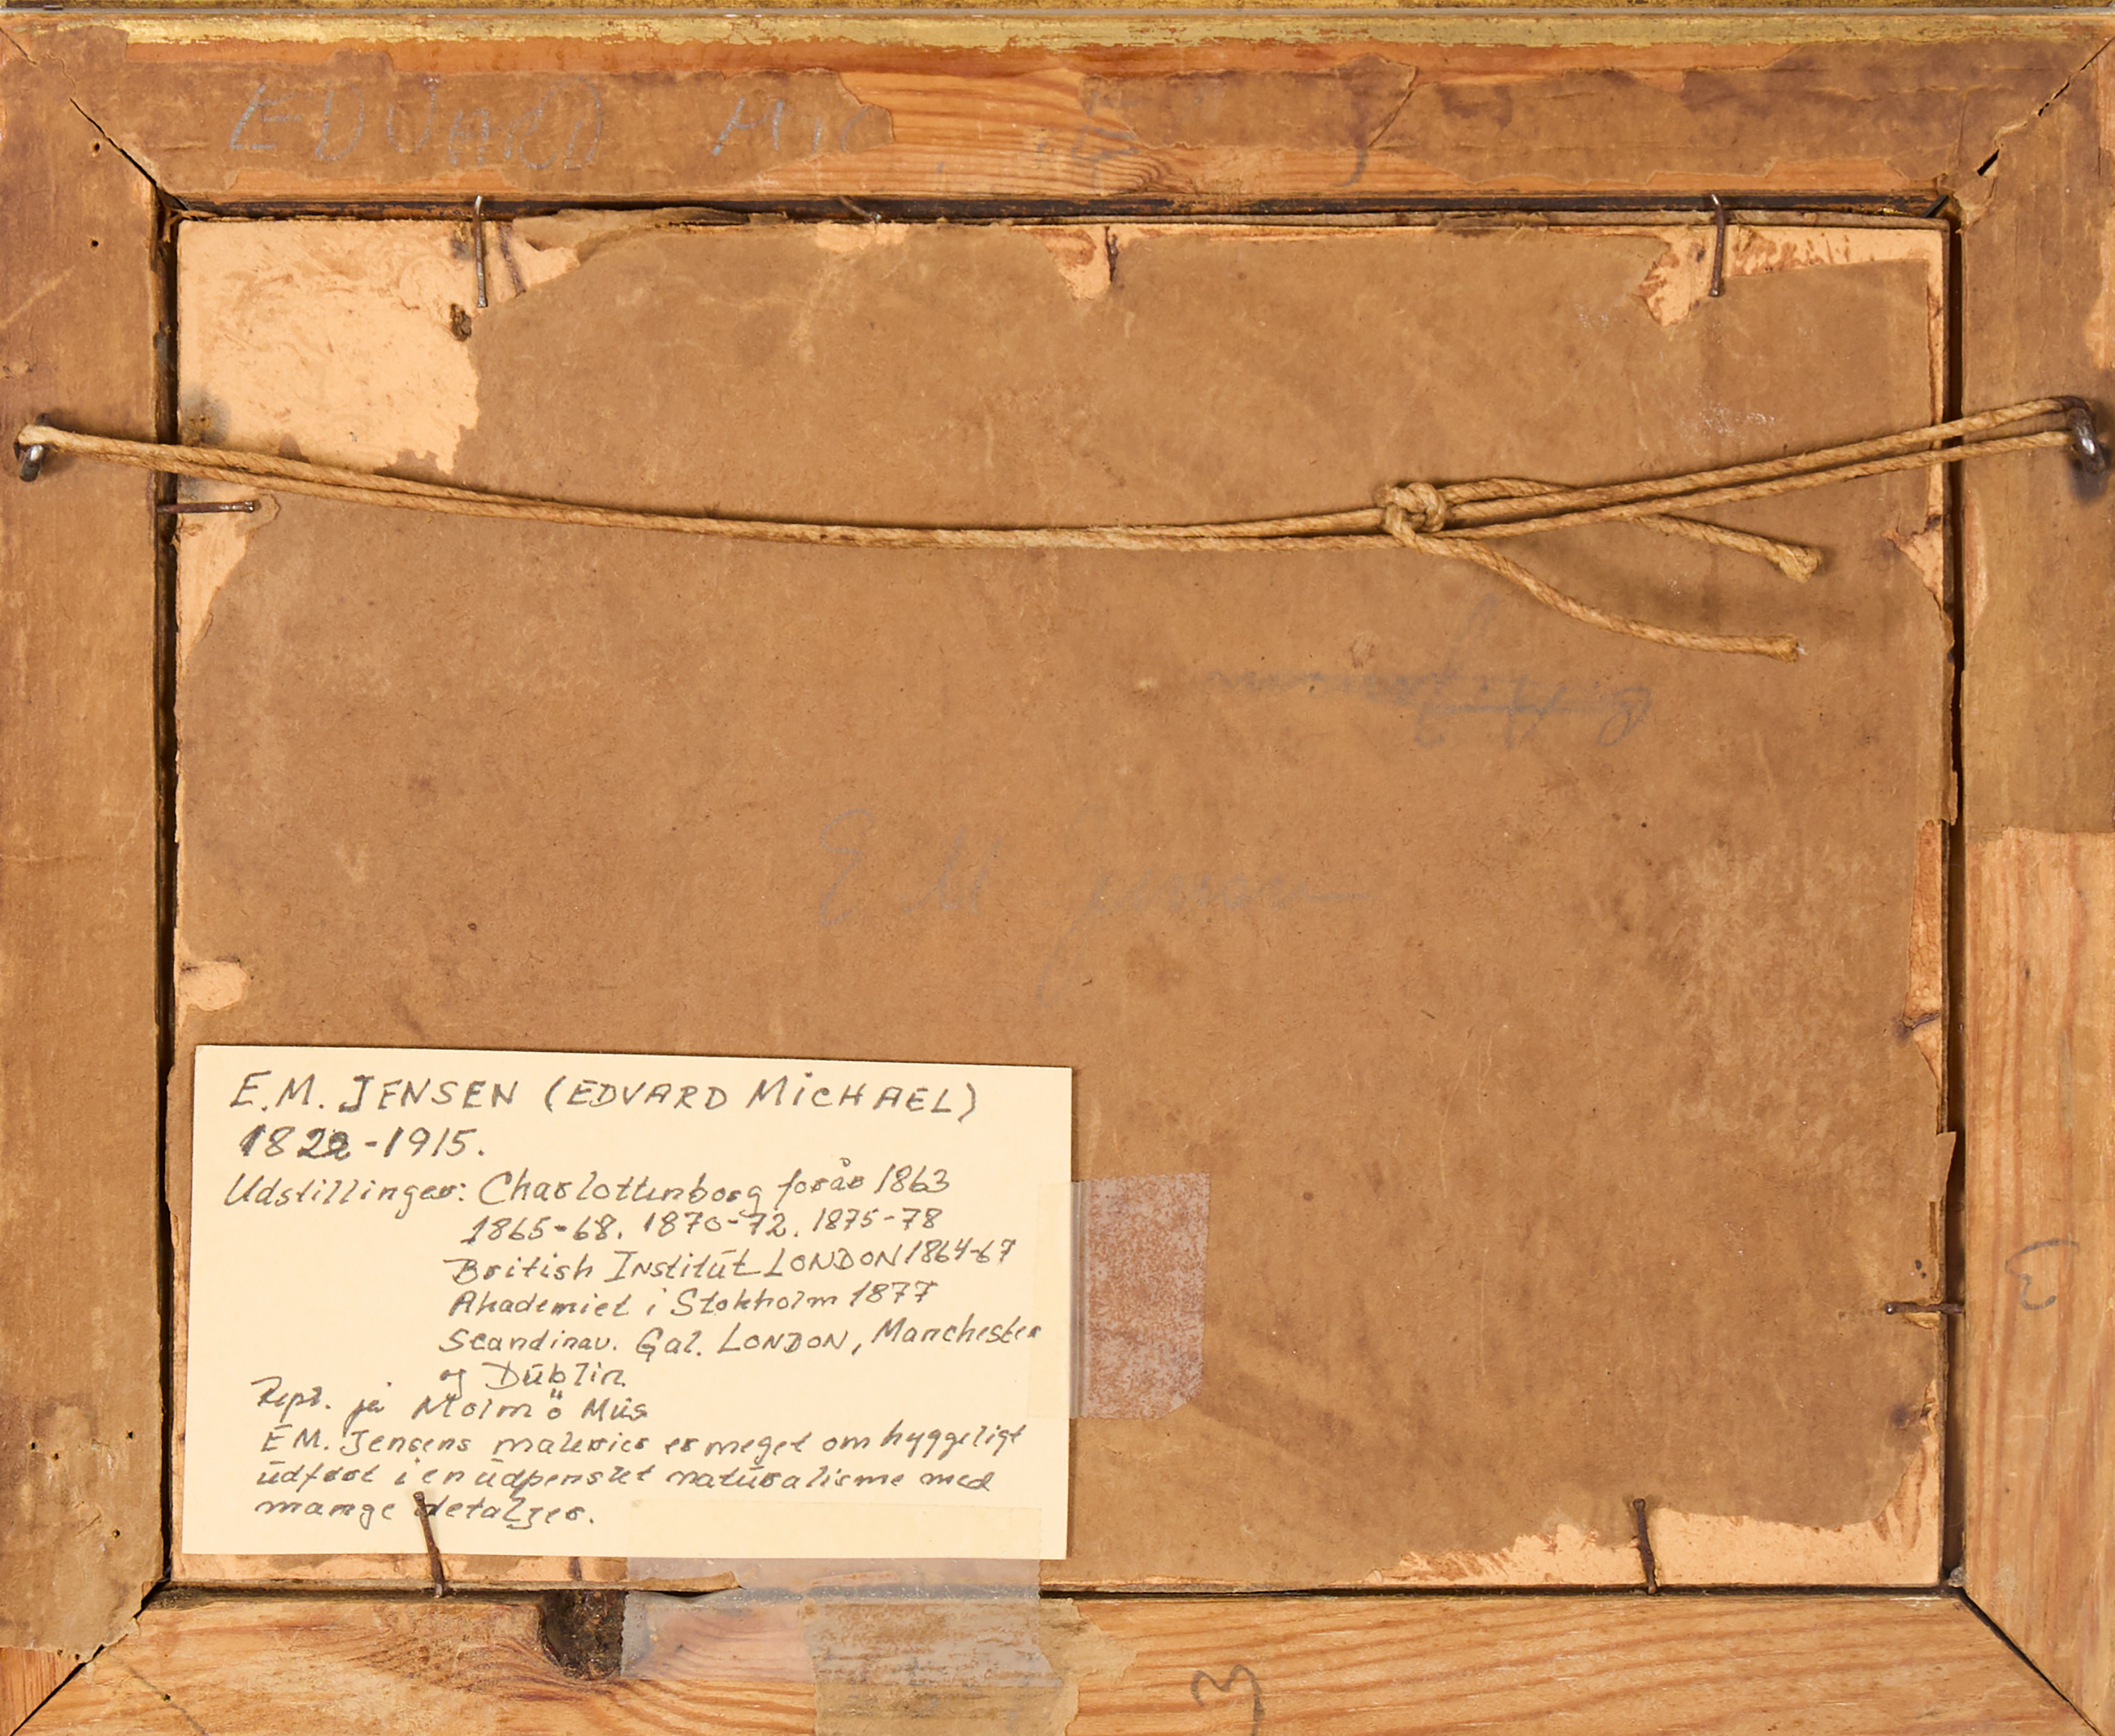 EDVARD MIC
E M Jensen
E.M. JENSEN (EDVARD MiCHAEL)
1822-1915.
Udstillinger: Charlottenborg forår 1863
1865-68. 1870-72. 1875-78
British Institut LONDON 1864-67
Akademiet i Stokholm 1877
Scandinav. Gal. LONDON, Manchester
og Dublin.
Repr. på Malmö Mus
E M. Jensens malerier er meget omhyggeligt
udført i en udpenslet naturalisme med
mange detaljer.
3
3